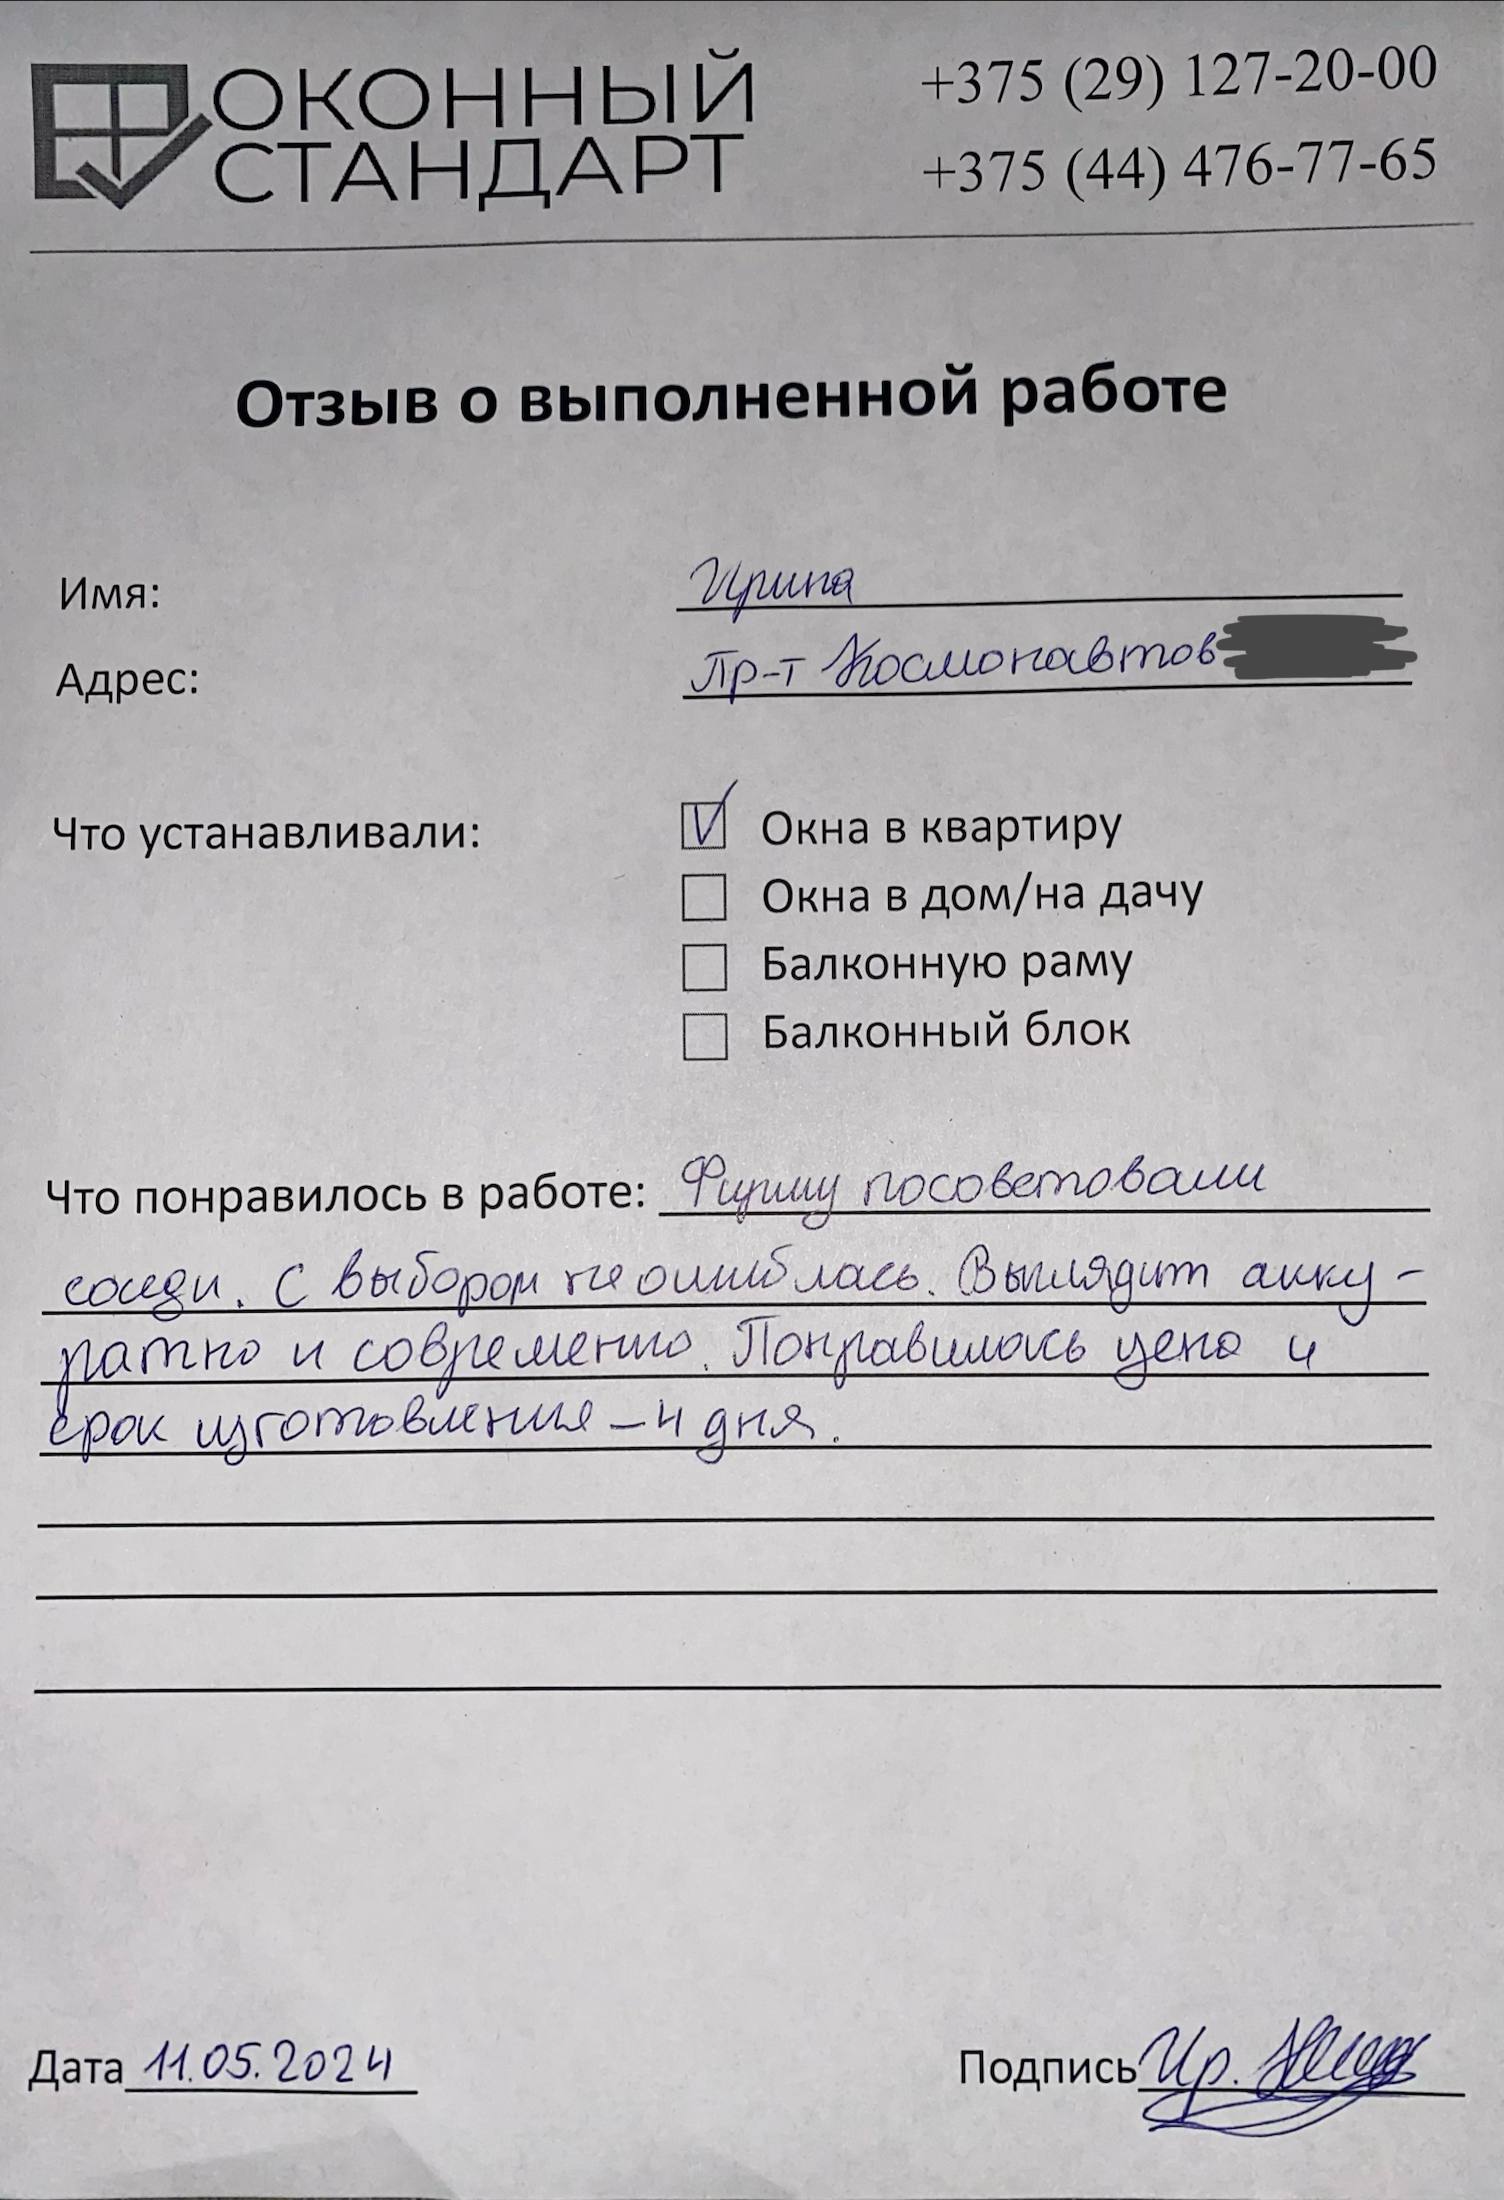 ОКОННЫЙ
СТАНДАРТ
+375 (29) 127-20-00
+375 (44) 476-77-65
Отзыв о выполненной работе
Имя: Ирина
Адрес: Пр-т Космонавтов
Что устанавливали:
Окна в квартиру
Окна в дом/на дачу
Балконную раму
Балконный блок
Что понравилось в работе: Фирму посоветовали
соседи. С выбором не ошиблась. Выглядит акку-
ратно и современно. Понравилась цена и
срок изготовления - 4 дня.
Дата 11.05.2024
Подпись Ир.